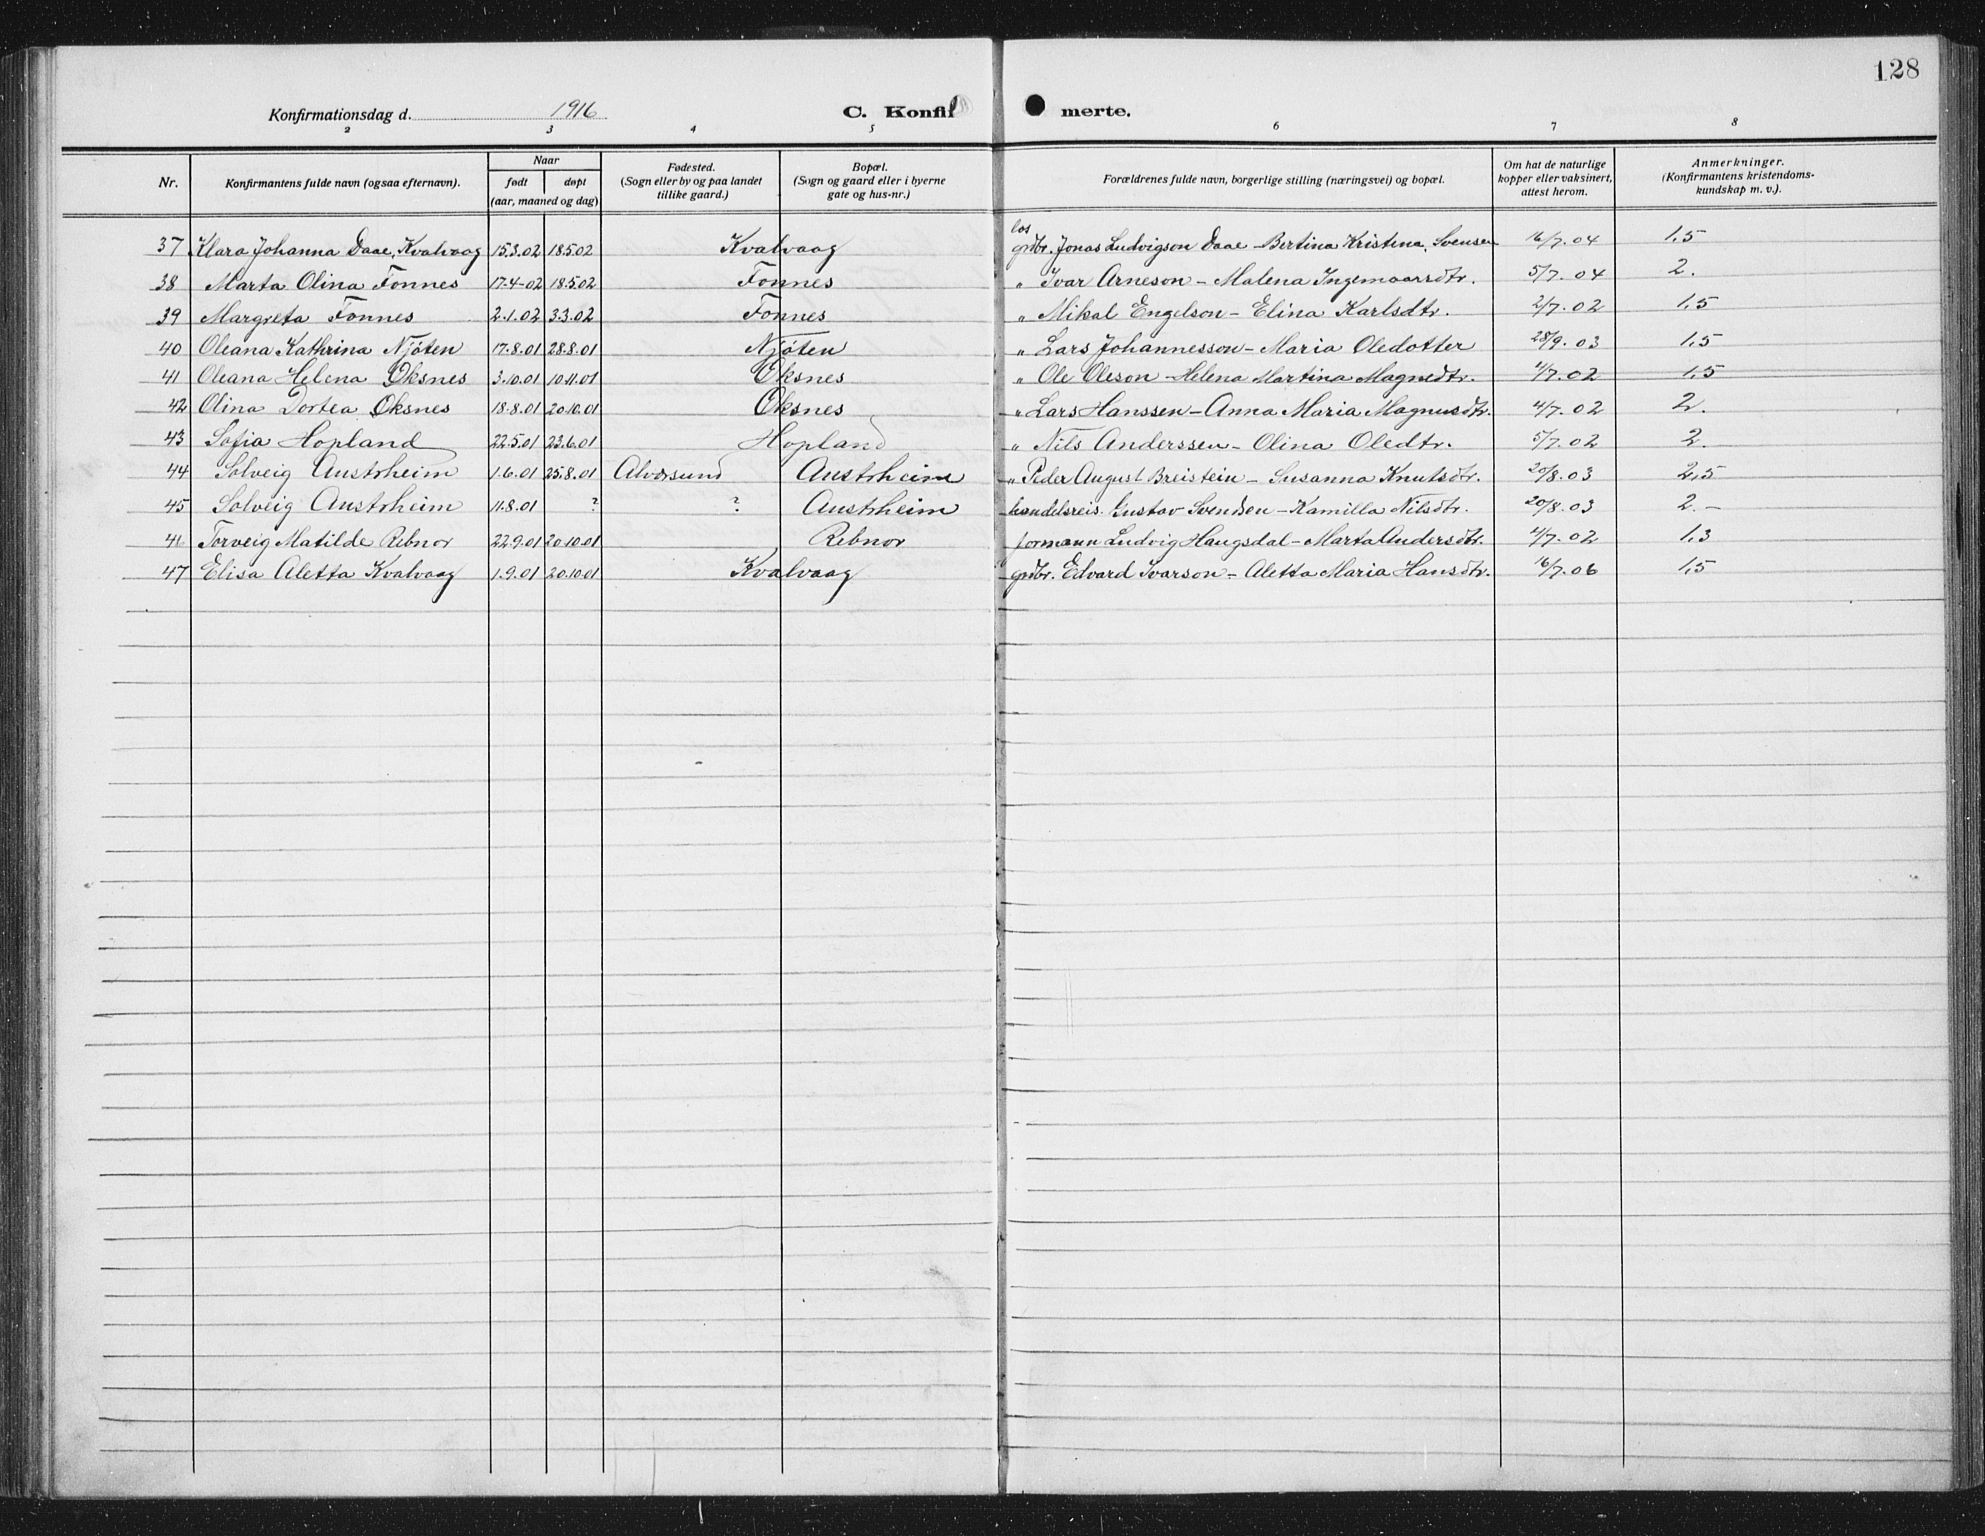 128
Konfirmationsdag d. 1916 C. Konfir merte.
2 3 4 5 6 7 8
Nr. Konfirmantens fulde navn (ogsaa efternavn). Naar født døpt (aar, maaned og dag) Fødested. (Sogn eller by og paa landet tillike gaard.) Bopæl. (Sogn og gaard eller i byerne gate og hus-nr.) Forældrenes fulde navn, borgerlige stilling (næringsvei) og bopæl. Om hat de naturlige kopper eller vaksinert, attest herom. Anmerkninger. (Konfirmantens kristendomskundskap m. v.).
los
37 Klara Johanna Daae, Kvalvaag 15.3.02 18.5.02 Kvalvaag grdbr. Jonas Ludvigson Daae - Bertina Kristina Svensen 16/7.04 1,5
38 Marta Olina Fonnes 17-4-02 18.5.02 Fonnes " Ivar Arneson - Malena Ingemaarsdtr. 5/7.04 2.
39 Margreta Fonnes 2.1.02 3.3.02 Fonnes " Mikal Engelson - Elina Karlsdtr. 2/7.02 1,5
40 Oleana Kathrina Njøten 17.8.01 28.8.01 Njøten " Lars Johannesson - Maria Oledotter 28/9.03 1,5
41 Oleana Helena Oksnes 3.10.01 10.11.01 Oksnes " Ole Oleson - Helena Martina Magnedtr. 4/7.02 1,5
42 Olina Dortea Oksnes 18.8.01 20.10.01 Oksnes " Lars Hanssen - Anna Maria Magnusdtr. 4/7.02 2.
43 Sofia Hopland 22.5.01 23.6.01 Hopland " Nils Anderssen - Olina Oledtr. 5/7.02 2
44 Solveig Austrheim 1.6.01 25.8.01 Alversund Austrheim " Peder August Breistein - Susanna Knutsdtr. 20/8.03 2,5
45 Solveig Austrheim 11.8.01 ? ? Austrheim handelsreis. Gustav Svendsen - Kamilla Nilsdtr. 20/8.03 2.-
46 Torveig Matilde Rebnor 22.9.01 20.10.01 Rebnor formann Ludvig Haugsdal - Marta Andersdtr. 4/7.02 1,3
47 Elisa Aletta Kvalvaag 1.9.01 20.10.01 Kvalvaag grdbr. Edvard Ivarson - Aletta Maria Hansdtr. 16/7.06 1,5